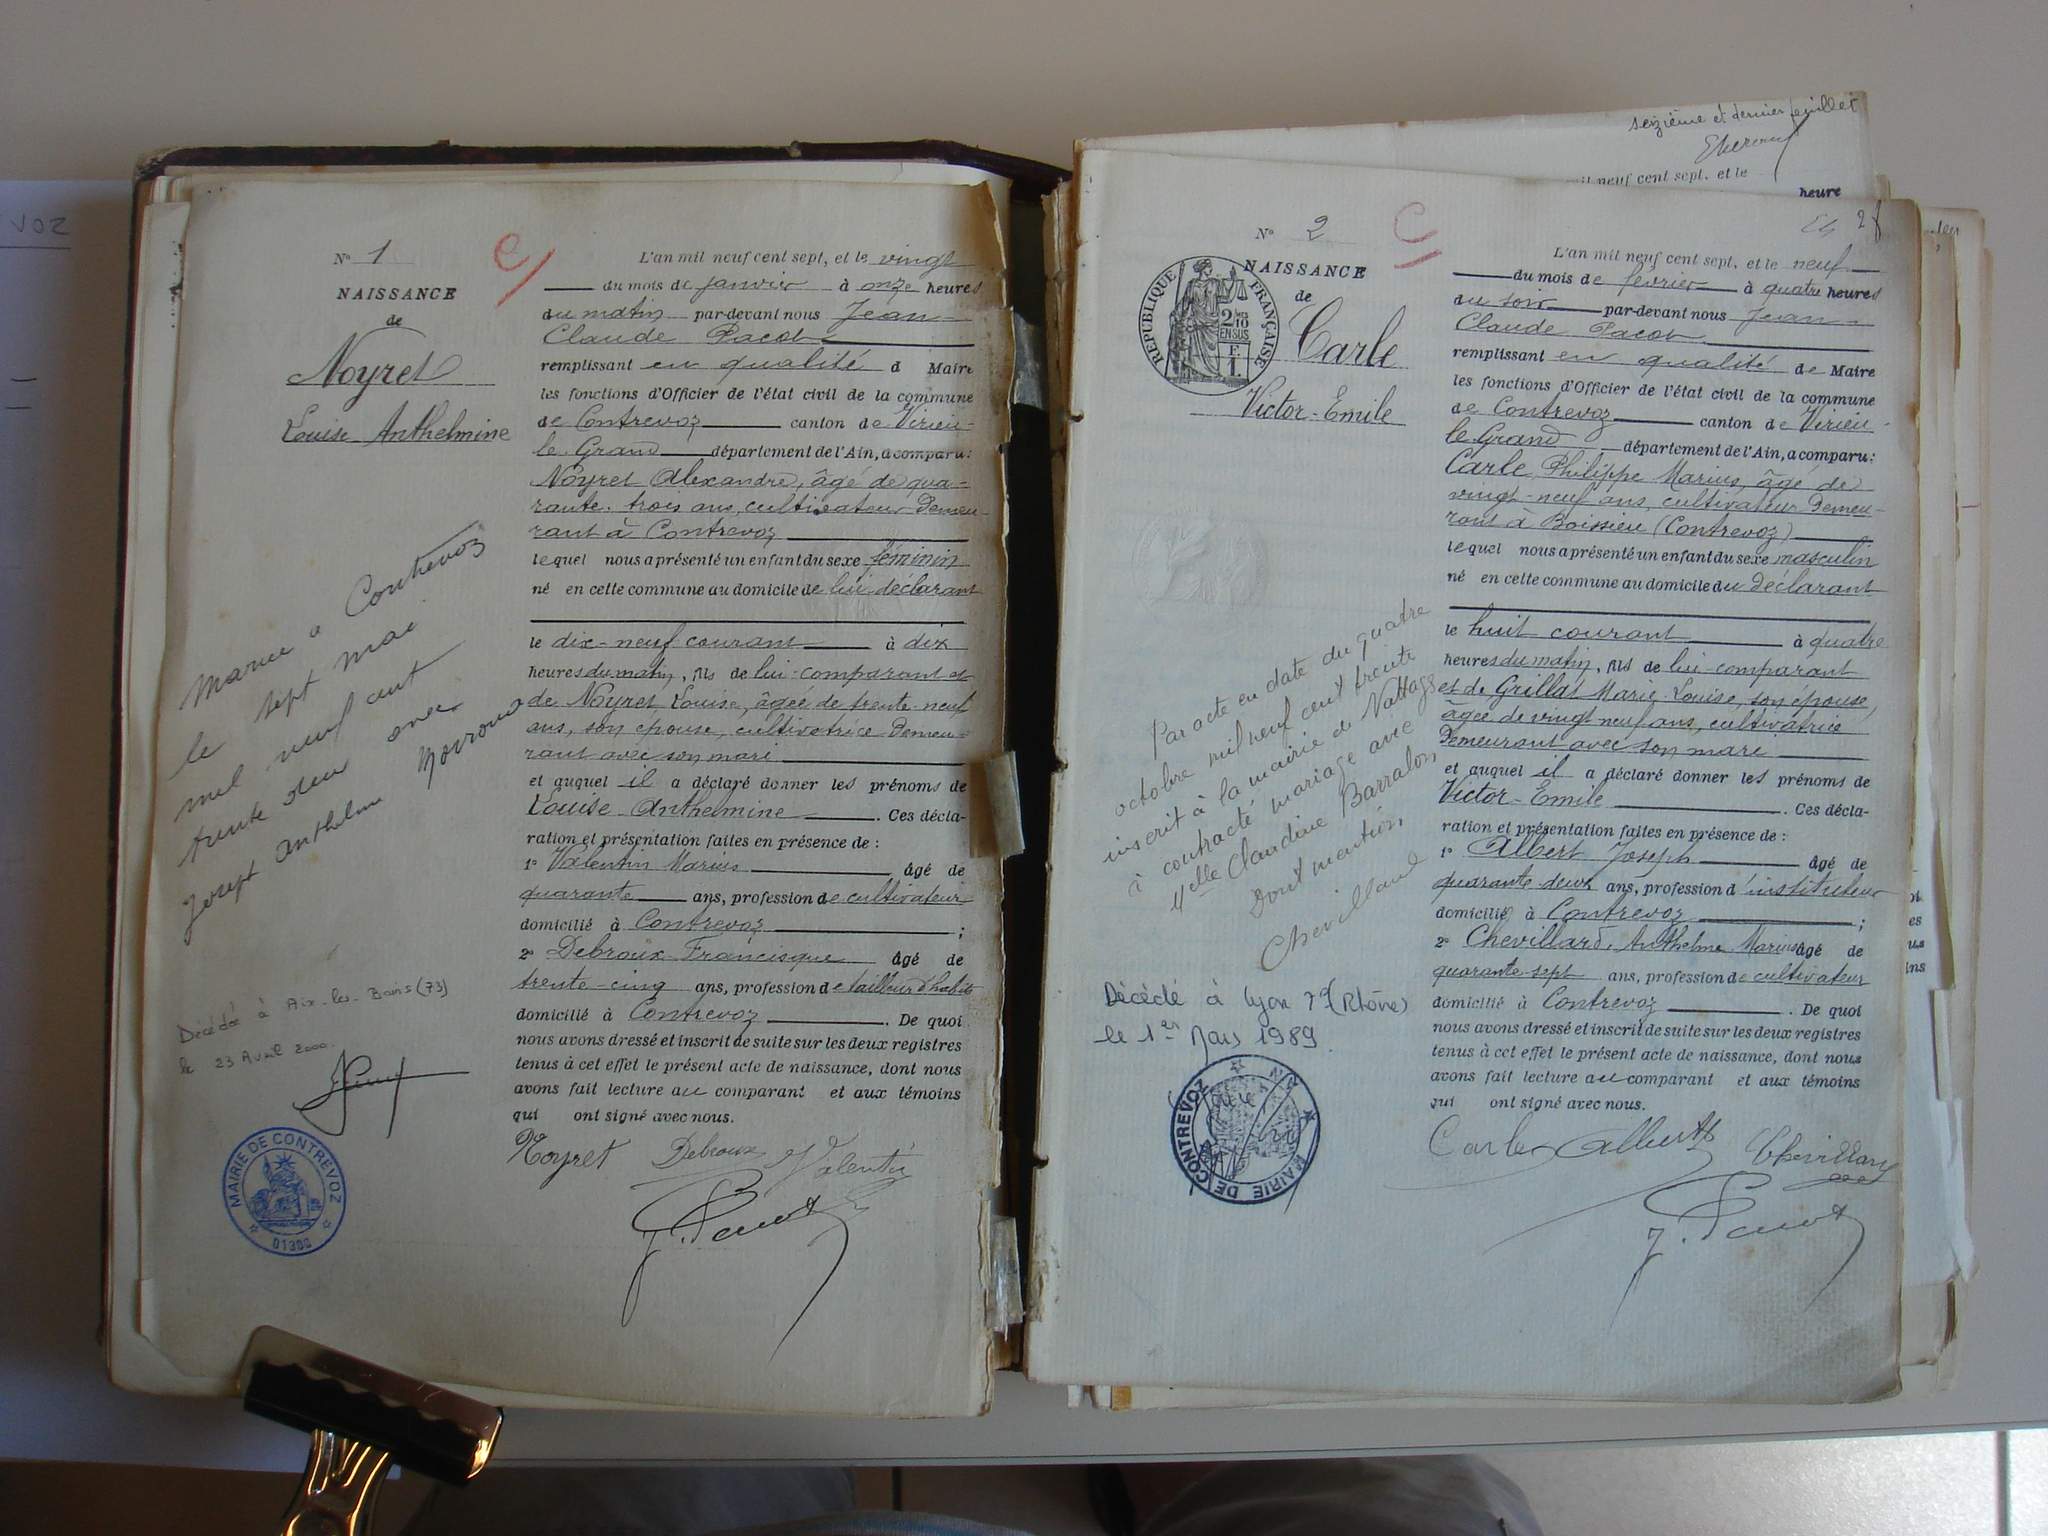 VOZ
Nº 1
NAISSANCE
de
Noyret
Louise Anthelmine
Mariée à Contrevoz
le sept mai
mil neuf cent
trente deux avec
Joseph Anthelme
Décédée à Aix-les-Bains (73)
le 23 Avril 2000.
MAIRIE DE CONTREVOZ
01300
L'an mil neuf cent sept, et le vingt
du mois de janvier à onze heures
du matin par-devant nous Jean-
Claude Pacot
remplissant en qualité d Maire
les fonctions d'Officier de l'état civil de la commune
de Contrevoz canton de Virieu-
le-Grand département de l'Ain, a comparu:
Noyret Alexandre, âgé de qua-
rante-trois ans, cultivateur demeu-
rant à Contrevoz
lequel nous a présenté un enfant du sexe féminin
né en cette commune au domicile de lui déclarant
le dix-neuf courant à dix
heures du matin, fils de lui-comparant et
de Noyret Louise, âgée de trente-neuf
ans, son épouse, cultivatrice demeu-
rant avec son mari
et auquel il a déclaré donner les prénoms de
Louise Anthelmine. Ces décla-
ration et présentation faites en présence de :
1º Valentin Marius, âgé de
quarante ans, profession de cultivateur
domicilié à Contrevoz ;
2º Debroux Francisque âgé de
trente-cinq ans, profession de tailleur d'habits
domicilié à Contrevoz. De quoi
nous avons dressé et inscrit de suite sur les deux registres
tenus à cet effet le présent acte de naissance, dont nous
avons fait lecture au comparant et aux témoins
qui ont signé avec nous.
Noyret Debroux Valentin
J. Pacot
seizième et dernier feuillet
mil neuf cent sept, et le
heure
2
Nº 2
NAISSANCE
de
Carle
Victor-Emile
RÉPUBLIQUE FRANÇAISE
2/10
EN SUS
F.
1.
Par acte en date du quatre
octobre mil neuf cent trente
inscrit à la mairie de Nattages
à contracté mariage avec
Melle Claudine Barralon
Dont mention,
Chevillard
Décédé à Lyon 7e (Rhône)
le 1er Mars 1989
MAIRIE DE CONTREVOZ
AIN
L'an mil neuf cent sept, et le neuf
du mois de février à quatre heures
du soir par-devant nous Jean-
Claude Pacot
remplissant en qualité de Maire
les fonctions d'Officier de l'état civil de la commune
de Contrevoz canton de Virieu-
le-Grand département de l'Ain, a comparu:
Carle Philippe Marius, âgé de
vingt-neuf ans, cultivateur demeu-
rant à Boissieu (Contrevoz)
lequel nous a présenté un enfant du sexe masculin
né en cette commune au domicile du déclarant
le huit courant à quatre
heures du matin, fils de lui-comparant
et de Grillat Marie-Louise, son épouse,
âgée de vingt neuf ans, cultivatrice
demeurant avec son mari
et auquel il a déclaré donner les prénoms de
Victor-Emile. Ces décla-
ration et présentation faites en présence de :
1º Albert Joseph âgé de
quarante-deux ans, profession d'instituteur
domicilié à Contrevoz ;
2º Chevillard, Anthelme Marius âgé de
quarante-sept ans, profession de cultivateur
domicilié à Contrevoz. De quoi
nous avons dressé et inscrit de suite sur les deux registres
tenus à cet effet le présent acte de naissance, dont nous
avons fait lecture au comparant et aux témoins
qui ont signé avec nous.
Carle Albert Chevillard
J. Pacot